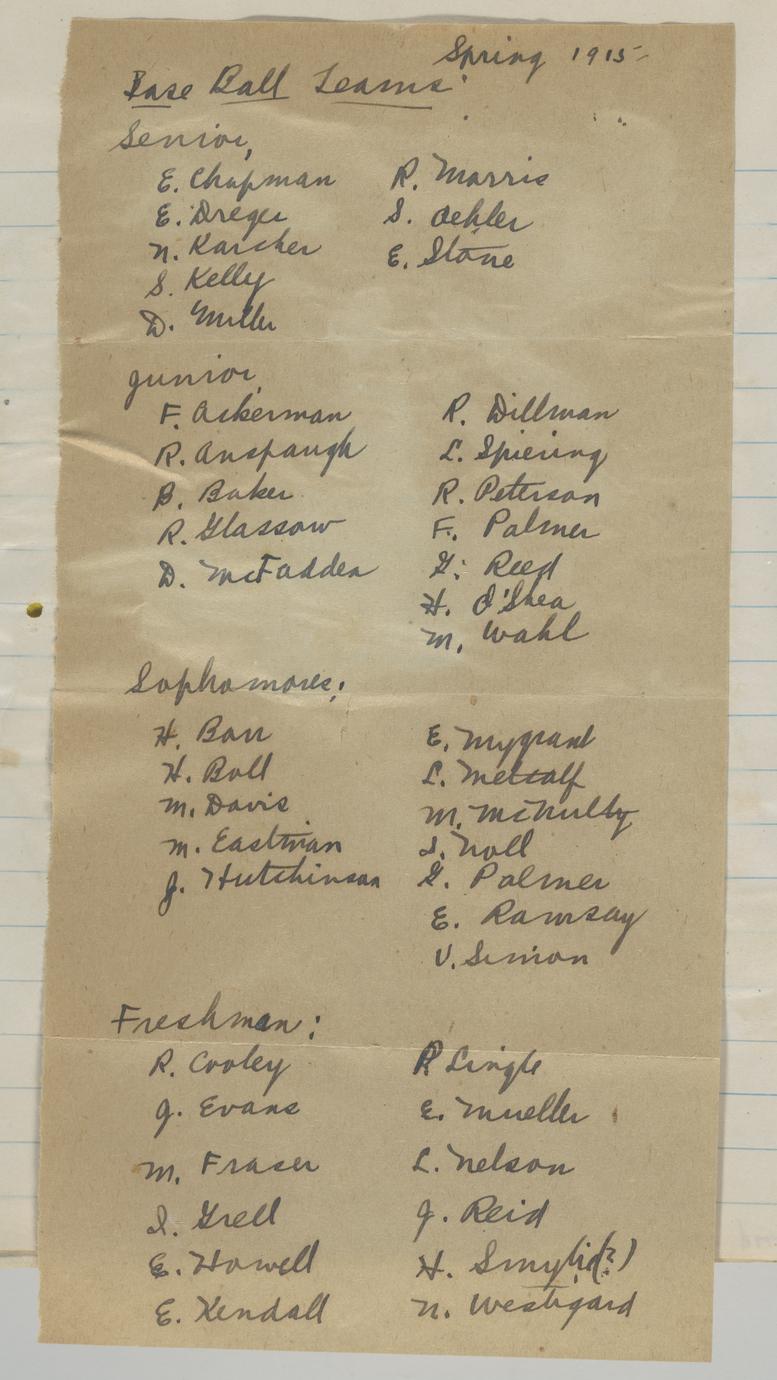 Spring 1915
Base Ball Teams:
Senior,
E. Chapman
E. Dreger
N. Karcher
S. Kelly
D. Miller
R. Morris
S. Oehler
E. Stone
Junior,
F. Ackerman
R. Anspaugh
B. Baker
R. Glassow
D. McFadden
R. Dillman
L. Spiering
R. Peterson
F. Palmer
G. Reed
H. O'Shea
M. Wahl
Sophomores:
H. Barr
H. Boll
M. Davis
M. Eastman
J. Hutchinson
E. Mygrant
L. Metcalf
M. McNulty
I. Noll
G. Palmer
E. Ramsay
V. Simon
Freshman:
R. Cooley
J. Evans
M. Fraser
I. Grell
E. Howell
E. Kendall
R Lingle
E. Mueller
L. Nelson
J. Reid
H.
N. Westigard